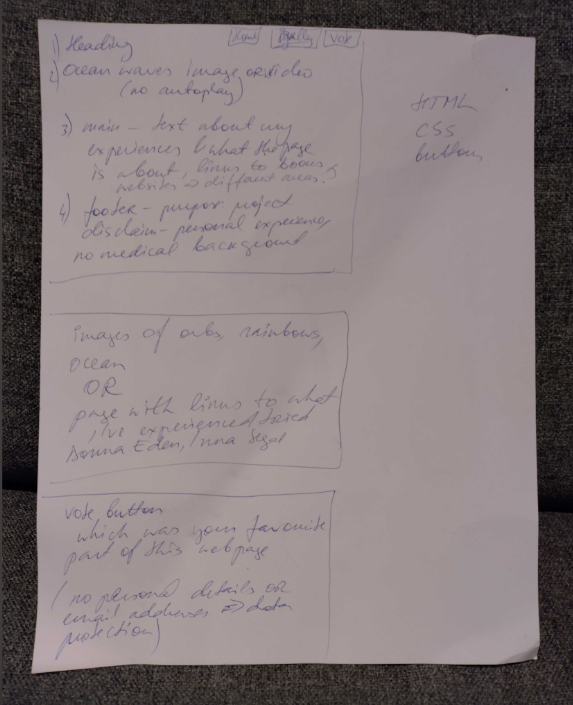 Home Vote
1) Heading
2) Ocean waves image or video
(no autoplay)
3) main – text about my
experiences & what the page
is about, links to books
websites => different areas?
4) footer – purpose project
disclaim – personal experience,
no medical background
HTML
CSS
buttons
images of orbs, rainbows,
ocean
OR
page with links to what
I've experienced
Donna Eden, Inna Segal
vote button
which was your favourite
part of this webpage
(no personal details or
email addresses => data
protection)